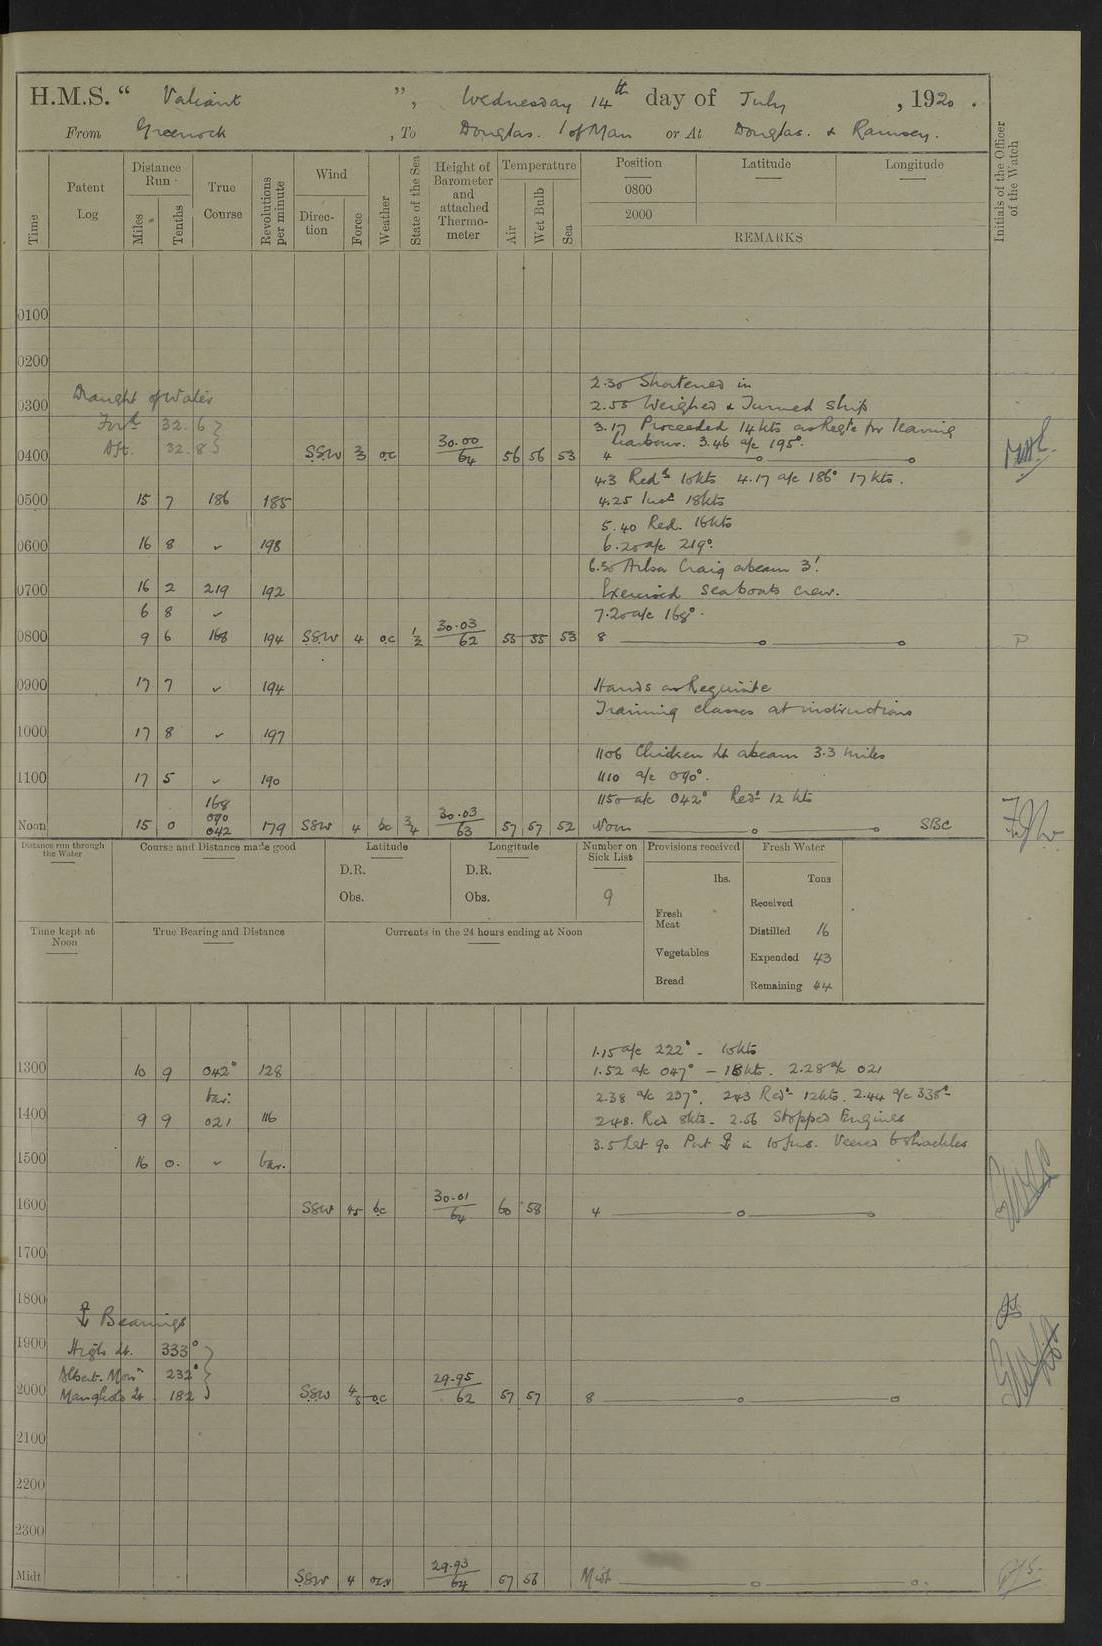 H.M.S. “ Valiant ”, Wednesday 14th day of July , 1920 .
From Greenock , To Douglas. I of Man or At Douglas. & Ramsey.
Time Patent Log Distance Run Miles Tenths True Course Revolutions per minute Wind Direction Force Weather State of the Sea Height of Barometer and attached Thermometer Temperature Air Wet Bulb Sea Position Latitude Longitude Initials of the Officer of the Watch
0800
2000
REMARKS
0100
0200
2.30 Shortened in
Draught of Water
0300 2.55 Weighed & Turned Ship
For'd 32.6 3.17 Proceeded 14 kts as Reqte for leaving
Aft. 32.8 harbour. 3.46 a/c 195°.
0400 SSW 3 oc 30.00 64 56 56 53 4
4.3 Red'd 10 kts 4.17 a/c 186° 17 kts.
0500 15 7 186 185 4.25 Incd 18 kts
5.40 Red. 16 kts
0600 16 8 ✓ 198 6.20 a/c 219°.
6.50 Ailsa Craig abeam 3'.
0700 16 2 219 192 Exercised Seaboats crew.
6 8 ✓ 7.20 a/c 168°.
0800 9 6 168 194 SSW 4 oc 1/2 30.03 62 55 55 53 8
0900 17 7 ✓ 194 Hands as Requisite
Training classes at instructions
1000 17 8 ✓ 197
1106 Chicken Lt abeam 3.3 miles
1100 17 5 ✓ 190 1110 a/c 090°.
168 1150 a/c 042° Red'd 12 kts
090
Noon 15 0 042 179 SSW 4 bc 3/4 30.03 63 57 57 52 Noon SBC
Distance run through the Water Course and Distance made good Latitude Longitude Number on Sick List Provisions received Fresh Water
D.R. D.R. lbs. Tons
Obs. Obs. 9 Received
Fresh Meat
Time kept at Noon True Bearing and Distance Currents in the 24 hours ending at Noon Distilled 16
Vegetables Expended 43
Bread Remaining 44
1.15 a/c 222° - 10 kts
1300 10 9 042° 128 1.52 a/c 047° - 18 kts. 2.28 a/c 021
var. 2.38 a/c 297°. 2.43 Red'd 12 kts. 2.44 a/c 338°
1400 9 9 021 116 2.48. Red 8 kts. 2.56 Stopped Engines
3.5 Let go Port ⚓ in 10 fms. Veered 6 shackles
1500 16 0. ✓ var.
1600 SSW 4-5 bc 30.01 64 60 58 4
1700
1800
⚓ Bearings
1900 High Lt. 333°
Albert. Mont 232°
2000 Maughold Lt 182 SSW 4-5 oc 29.95 62 57 57 8
2100
2200
2300
Midt SSW 4 29.93 64 57 56 Midt